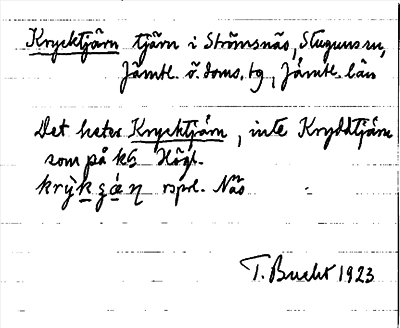 Krycktjärn tjärn i Strömsnäs, Stuguns sn,
Jämtl. ö. doms. tg, Jämtl. län
Det heter Krycktjärn, inte Kryddtjärn
som på ks Högl.
rspr. Näs
T. Bucht 1923